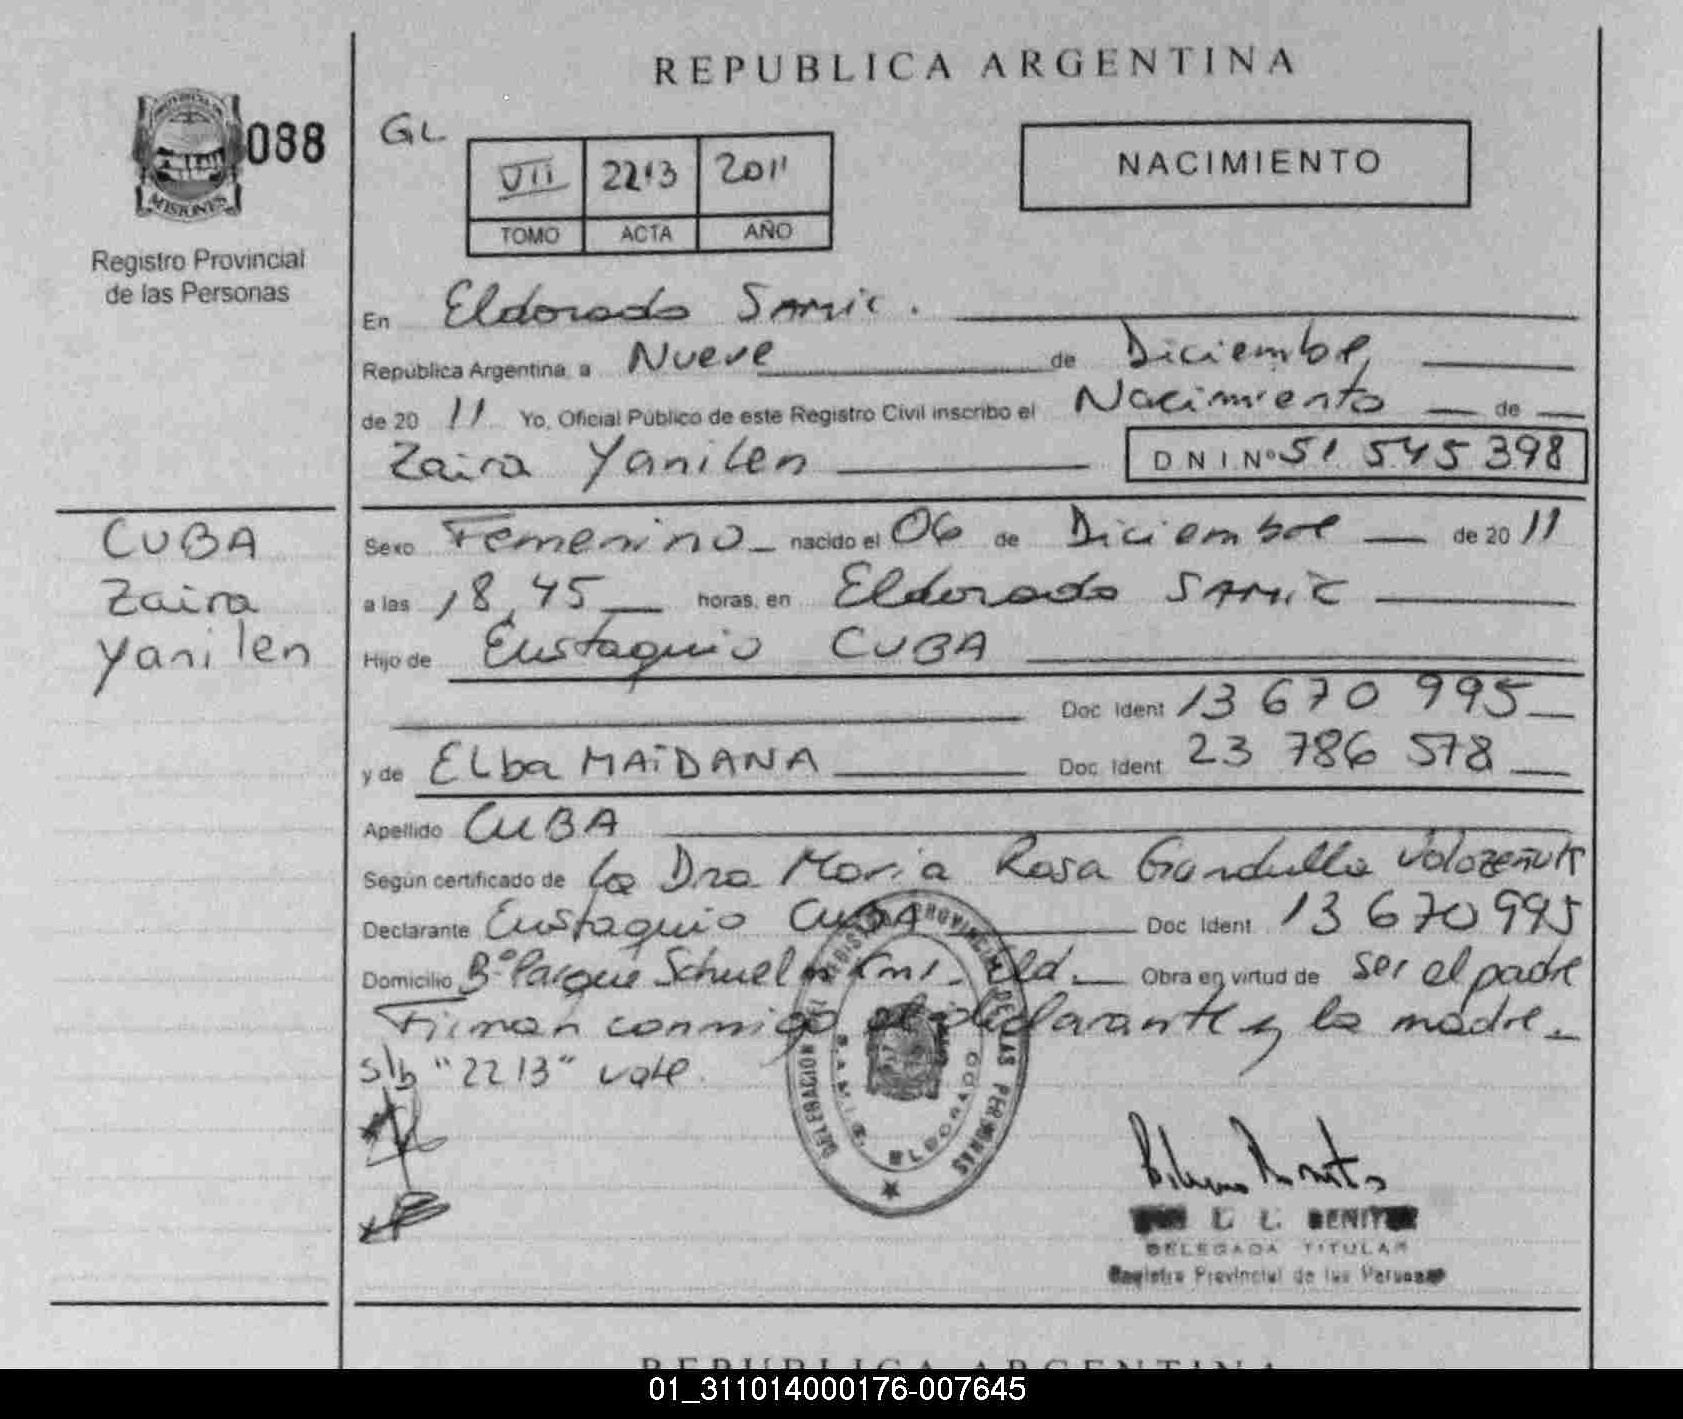 REPUBLICA ARGENTINA
PROVINCIA DE
MISIONES
088
GL
VII 2213 2011
TOMO ACTA AÑO
NACIMIENTO
Registro Provincial
de las Personas
En Eldorado SAMiC.
Republica Argentina, a Nueve de Diciembre
de 20 11 Yo, Oficial Público de este Registro Civil inscribo el Nacimiento de
Zaira Yanilen D N I Nº 51 545 398
CUBA
Zaira
Yanilen
Sexo Femenino nacido el 06 de Diciembre de 20 11
a las 18,45 horas, en Eldorado SAMiC
Hijo de Eustaquio CUBA
Doc. Ident. 13 670 995
y de ELba MAiDANA Doc. Ident. 23 786 578
Apellido CUBA
Según certificado de La Dra Maria Rosa Gandulla
Declarante Eustaquio CUBA Doc. Ident. 13 670 995
Domicilio Bº Parque Schuel Km1 Eld. Obra en virtud de ser el padre
Firman conmigo el declarante y la madre
s/b "2213" vale.
DELEGACION REGISTRO PROVINCIAL DE LAS PERSONAS
S.A.M.I.C. ELDORADO
BENITEZ
DELEGADA TITULAR
Registro Provincial de las Personas
REPUBLICA ARGENTINA
01_311014000176-007645